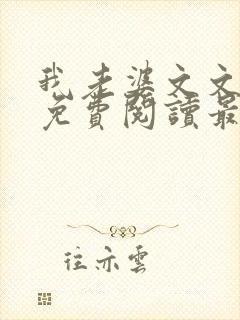 我老婆文文
免費閱讀最
往亦雲